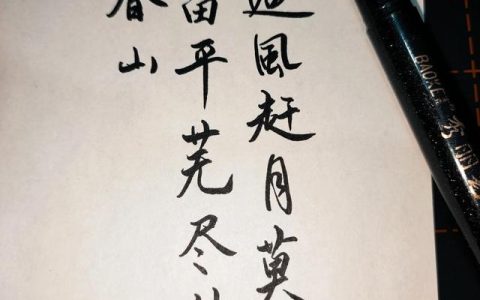 追風赶月莫
留平芜尽
春山
BAOKE 秀丽